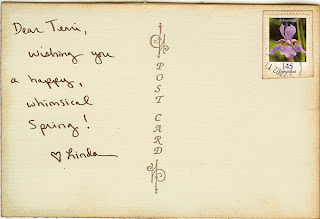 Dear Terri,
wishing you
a happy,
whimsical
Spring!
♡ Linda
POST CARD
145